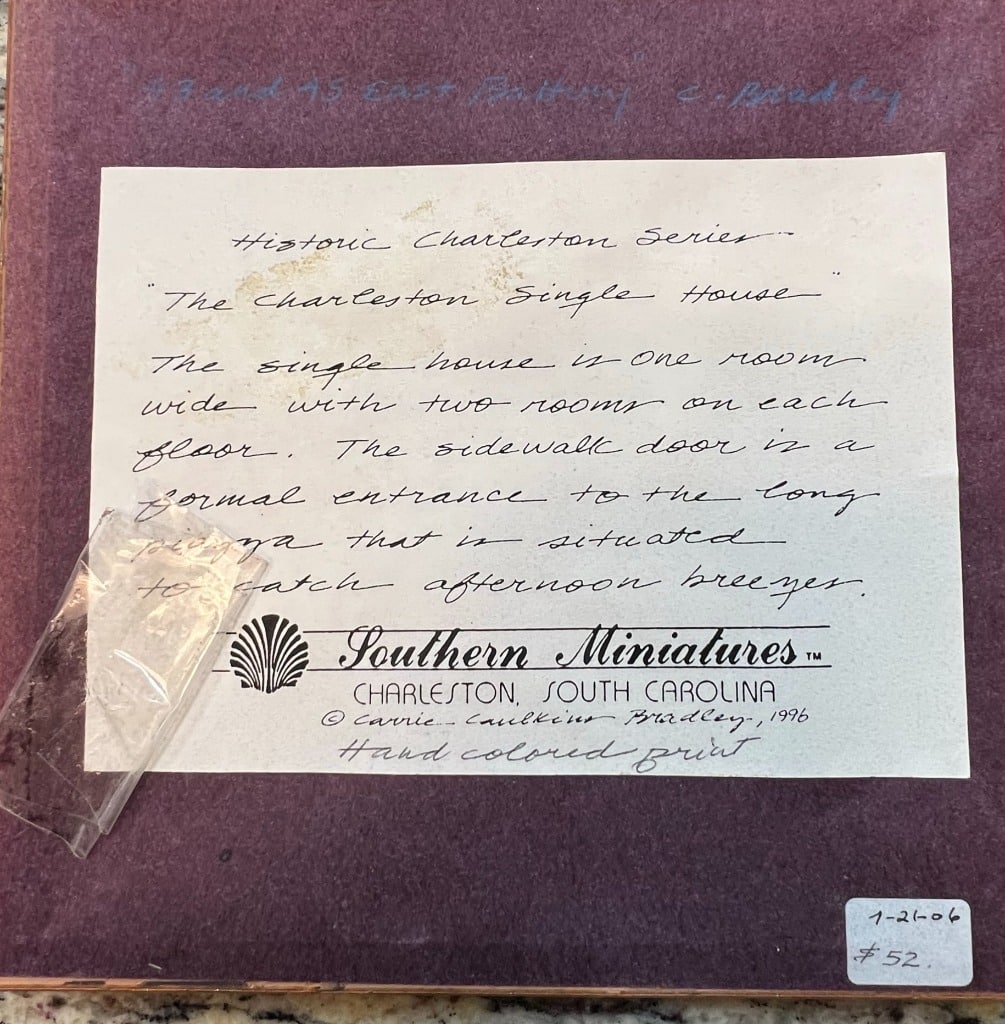 "43 and 45 East Battery" C. Bradley
Historic Charleston Series
"The Charleston Single House"
The single house is one room
wide with two rooms on each
floor. The sidewalk door is a
formal entrance to the long
piazza that is situated
to catch afternoon breezes.
Southern Miniatures TM
CHARLESTON, SOUTH CAROLINA
© Carrie Caulkins Bradley, 1996
Hand colored print
1-21-06
$52.